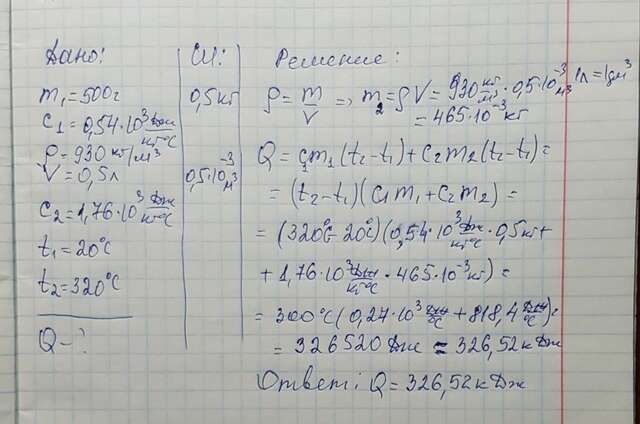 Дано:
m₁=500г
c₁=0,54·10³ Дж/кг°С
ρ=930 кг/м³
V=0,5л
c₂=1,76·10³ Дж/кг°С
t₁=20°С
t₂=320°С
Q-?
СИ:
0,5кг
0,5·10⁻³м³
Решение:
ρ=m/V => m₂=ρV=930 кг/м³·0,5·10⁻³м³ 1л=1дм³
=465·10⁻³кг
Q=c₁m₁(t₂-t₁)+c₂m₂(t₂-t₁)=
=(t₂-t₁)(c₁m₁+c₂m₂)=
=(320°С-20°С)(0,54·10³ Дж/кг°С·0,5кг+
+1,76·10³ Дж/кг°С·465·10⁻³кг)=
=300°С(0,27·10³ Дж/°С+818,4 Дж/°С)=
=326520Дж=326,52кДж
Ответ: Q=326,52кДж